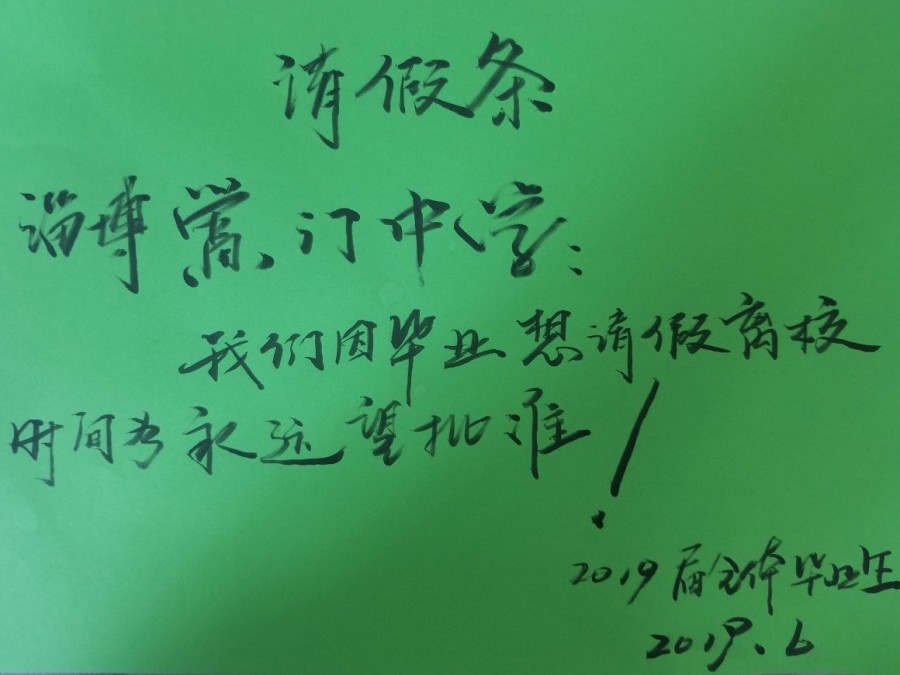 请假条
淄博黉门中学:
我们因毕业想请假离校
时间为永远望批准!
2019届全体毕业生
2019.6